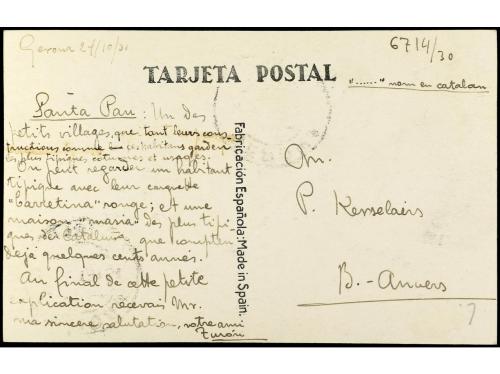 Gerona 27/10/31
6714/30
TARJETA POSTAL
"......" nom en catalan
Santa Pau: Un des
petits villages, que tant leurs cons-
tructions comme les habitans gardent
les plus tipiques coturnes et usages.
On peut regarder un habitant
tipique avec leur casquette
"barretina" rouge; et une
maison "masia" des plus tipi-
ques de Catalunya que comptent
déjà quelques cents annes.
Au final de cette petite
explication recevais Mr.
ma sincere salutation, votre ami
Fabricación Española: Made in Spain.
M.
P. Kerselaers
B.-Anvers